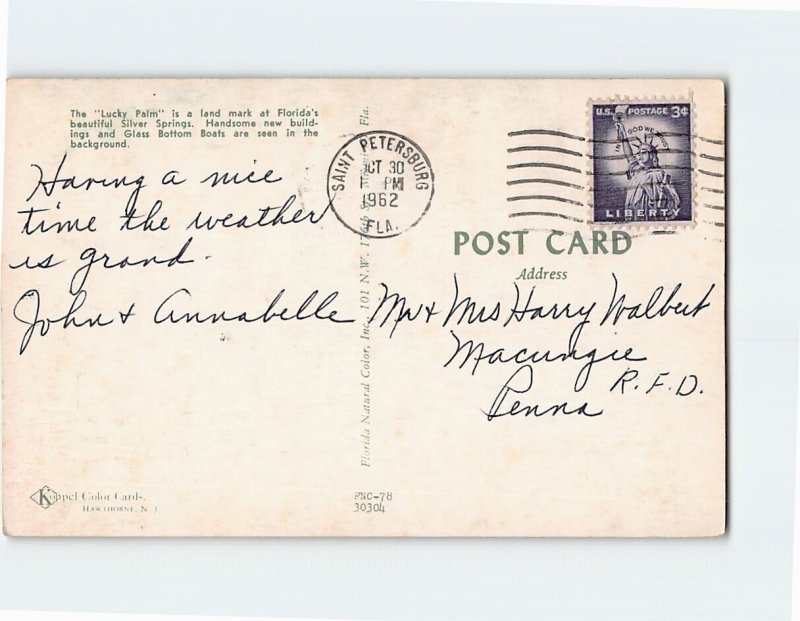 The "Lucky Palm" is a land mark at Florida's
beautiful Silver Springs. Handsome new build-
ings and Glass Bottom Boats are seen in the
background.
Having a nice
time the weather
is grand.
John & Annabelle
SAINT PETERSBURG
OCT 30
PM
1962
FLA.
U.S. POSTAGE 3¢
IN GOD WE TRUST
LIBERTY
POST CARD
Address
Mr & Mrs Harry Walbert
Macungie
R.F.D.
Penna
Florida Natural Color, Inc., 101 N.W. Fla.
Koppel Color Cards.
HAWTHORNE, N J
FNC-78
30304